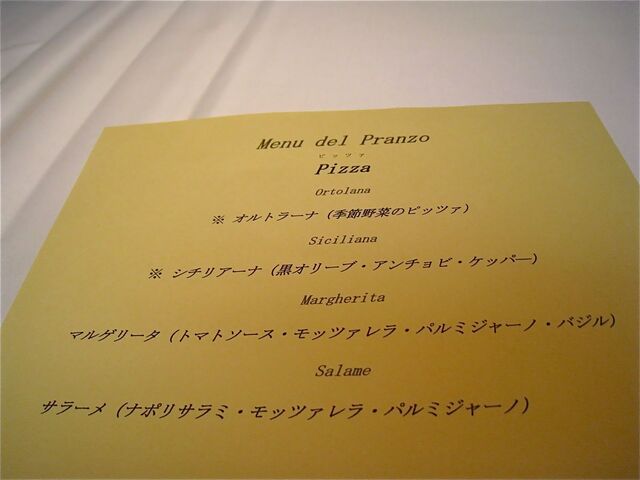 Menu del Pranzo
ピッツァ
Pizza
Ortolana
※ オルトラーナ (季節野菜のピッツァ)
Siciliana
※ シチリアーナ (黒オリーブ・アンチョビ・ケッパー)
Margherita
マルゲリータ (トマトソース・モッツァレラ・パルミジャーノ・バジル)
Salame
サラーメ (ナポリサラミ・モッツァレラ・パルミジャーノ)